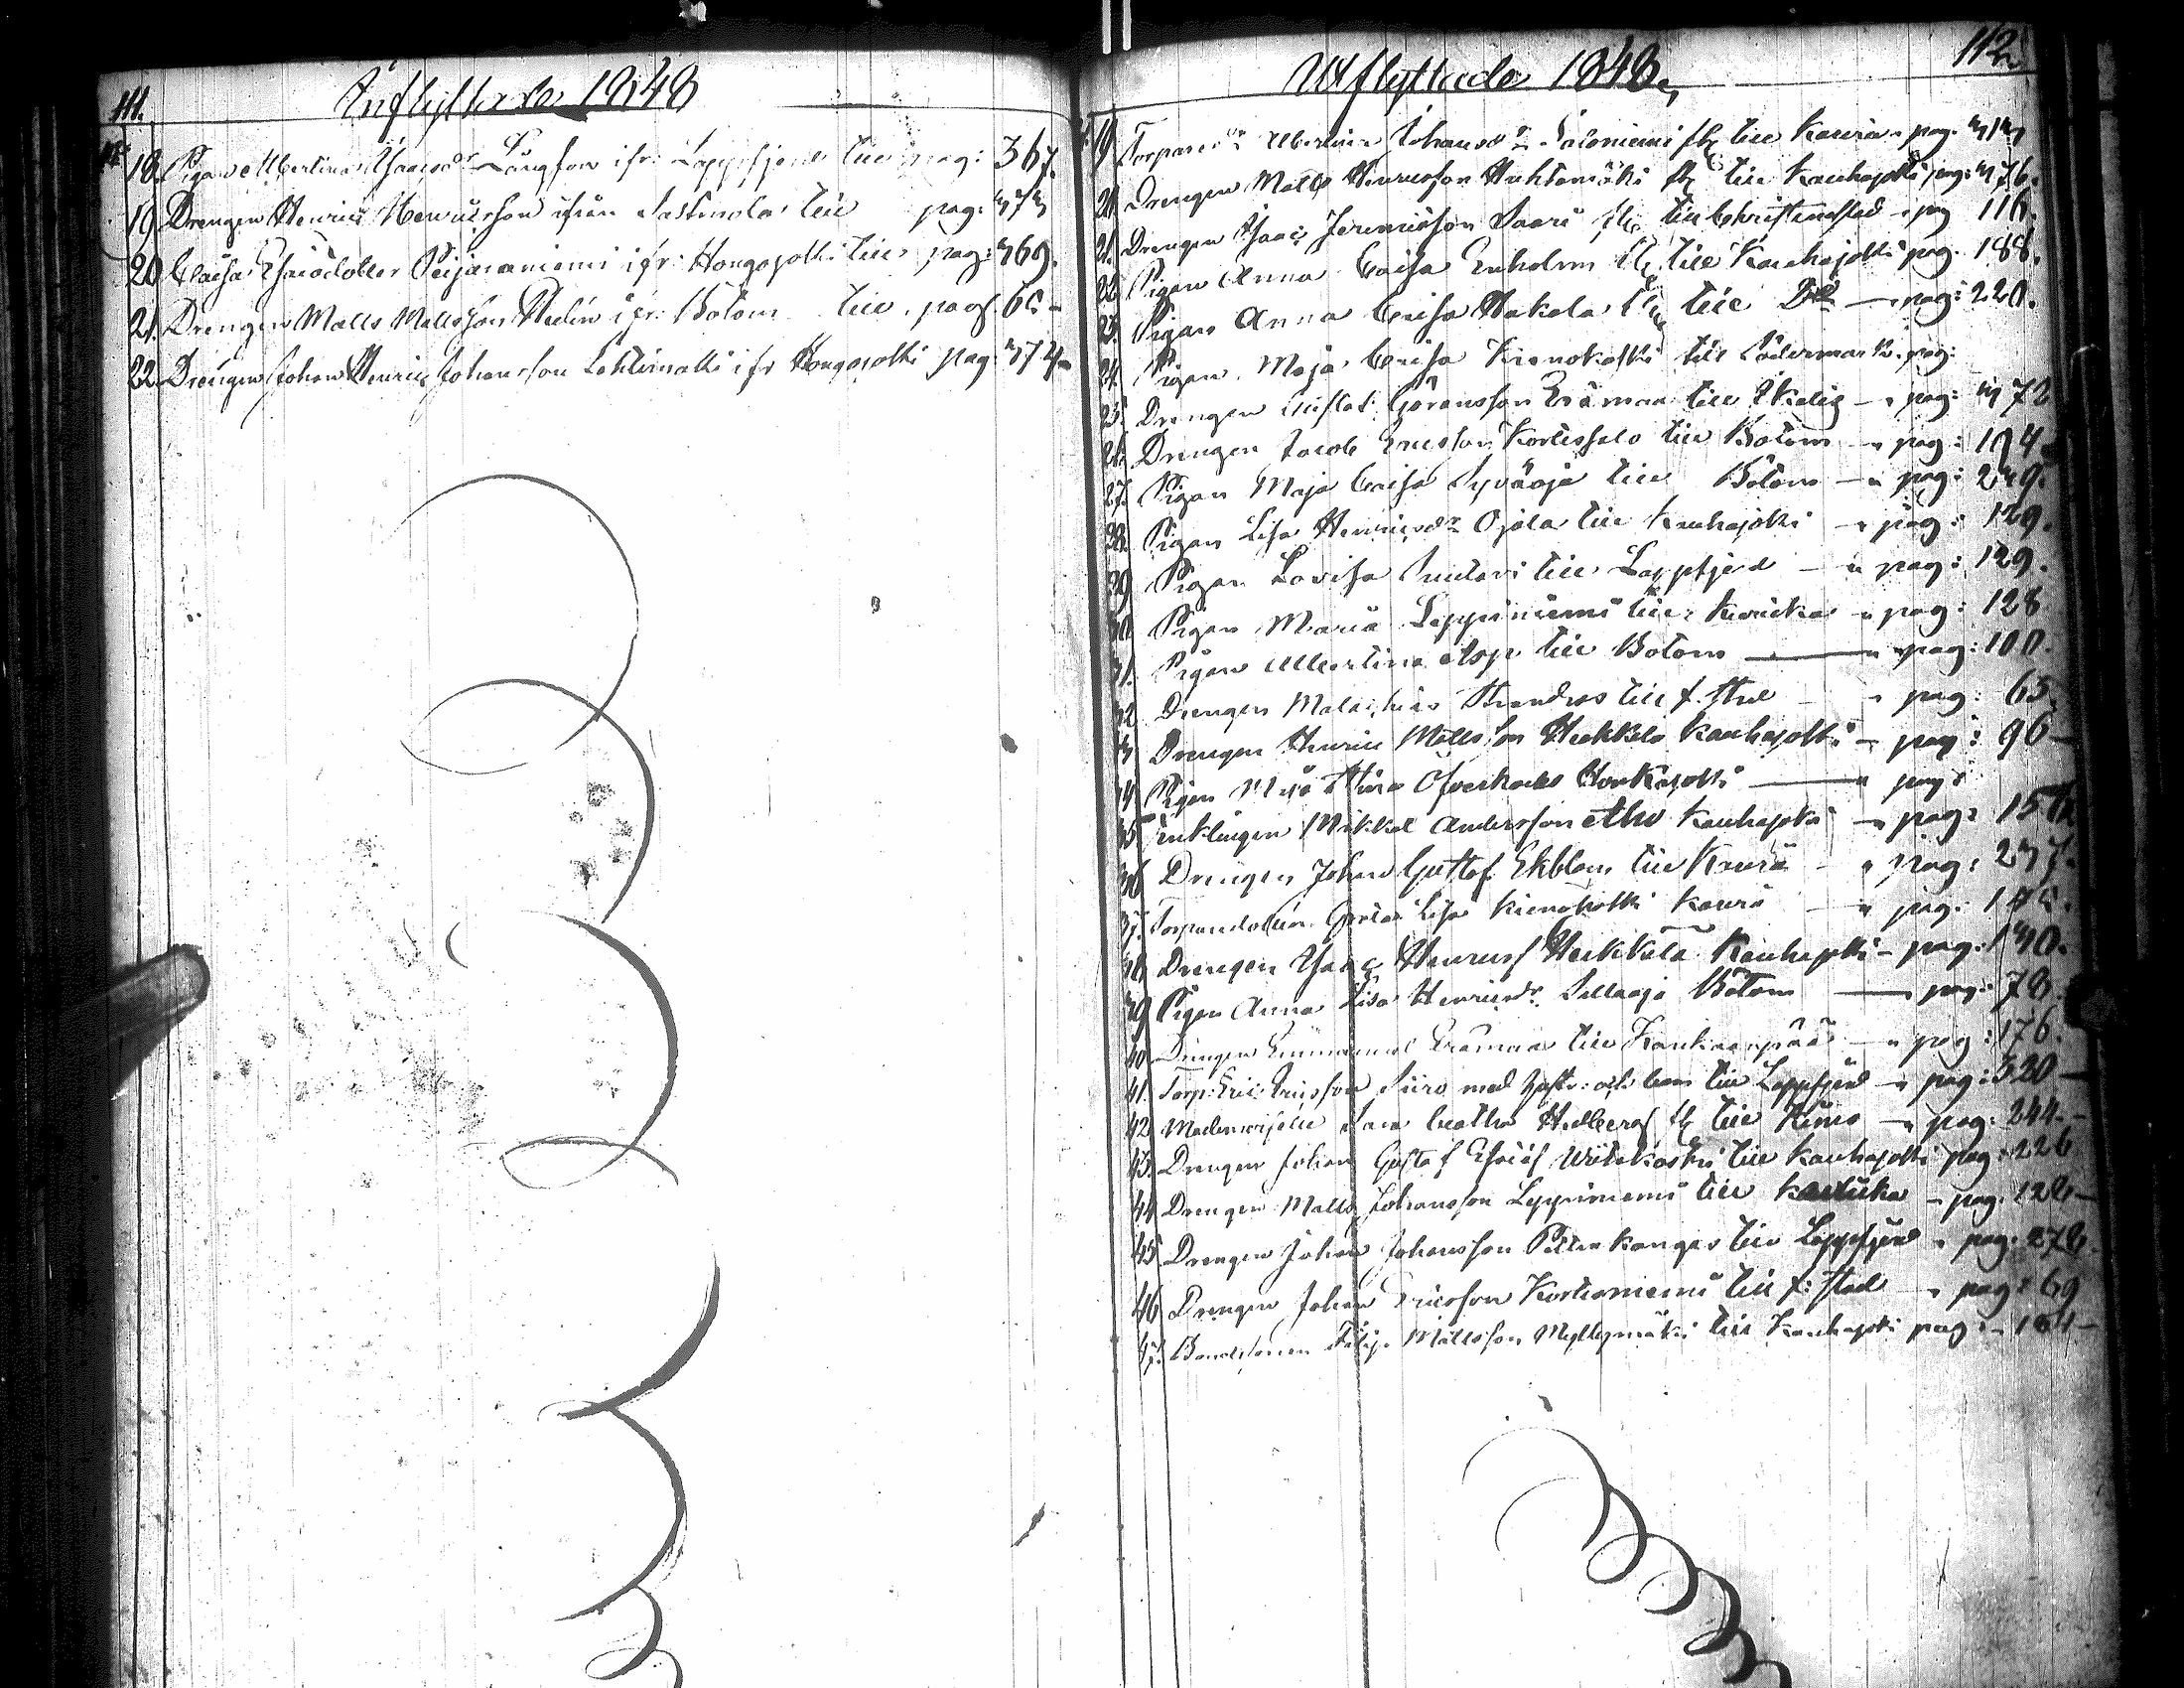 111.
Inflyttade 1848
18. Pigan Albertina Isaacsdr Långfors ifr: Lappfjerd till pag: 367.
19 Drengen Henric Henricsson ifrån Sastmola till pag: 373
20 Caisa Esaiædotter Peijariniemi ifr: Hongojoki till pag: 369.
21. Drengen Matts Mattsson Hedin ifr: Bötom till pag. 65
22. Drengen Johan Henric Johansson Lehtimäki ifr Hongojoki pag: 374
112
Utflyttade 1848
19 Torparedr Albertina Johansdr Saloniemi till Kaura pag. 313
20. Drengen Matts Henricsson Huhtamäki till Kauhajoki pag: 376.
21. Drengen Isaac Jeremiæsson Saari till Christinestad pag 116.
22. Pigan Anna Caisa Enholm till Kauhajoki pag. 188.
23. Pigan Anna Caisa Hakala till Do pag: 220.
24. Pigan Maja Caisa Kronokoski till Södermark pag:
25. Drengen Gustaf Göransson Erämaa till Ikalis pag: 372
26. Drengen Jacob Ericsson Kortessalo till Bötom pag: 194
27. Pigan Maja Caisa Syväoja till Bötom pag: 249.
28. Pigan Lisa Henricsdr Ojala till Kauhajoki pag: 129.
29 Pigan Lovisa Suutari till Lappfjerd pag: 129.
30. Pigan Maria Leppiniemi till Kurikka pag: 128
31. Pigan Albertina Asp till Bötom pag: 100.
32 Drengen Malachias Strandros till f. Stad pag: 65
33 Drengen Henric Mattsson Heikkilä Kauhajoki pag: 96
34 Pigan Maja Stina Öfverkoski Honkajoki pag:
35 Enklingen Mikkel Andersson Aho Kauhajoki pag: 15
36 Drengen Johan Gustaf Ekblom till Kaura pag: 237.
37. Torparedottren Greta Lisa Kronokoski Kaura pag:
38 Drengen Isaac Henricss Heikkilä Kauhajoki pag: 130.
39 Pigan Anna Lisa Henricsdr Sillanoja Bötom pag: 78
40 Drengen Emmanuel Erämaa till Kankaanpää pag: 176
41. Torp: Eric Ericsson Siiro med hustr: och barn till Lappfjerd pag: 320
42 Mademoiselle Sara Beatha Hedberg till Kimo pag: 244.
43. Drengen Johan Gustaf Esaiæss Wiitakoski till Kauhajoki pag: 226
44 Drengen Matts Johansson Leppiniemi till Kurikka pag. 128
45 Drengen Johan Johansson Pitkäkangas till Lappfjerd pag. 278
46 Drengen Johan Ericsson Kortesniemi till f: stad pag: 69
47. Bondesonen Filip Mattsson Myllymäki till Kauhajoki pag: 104